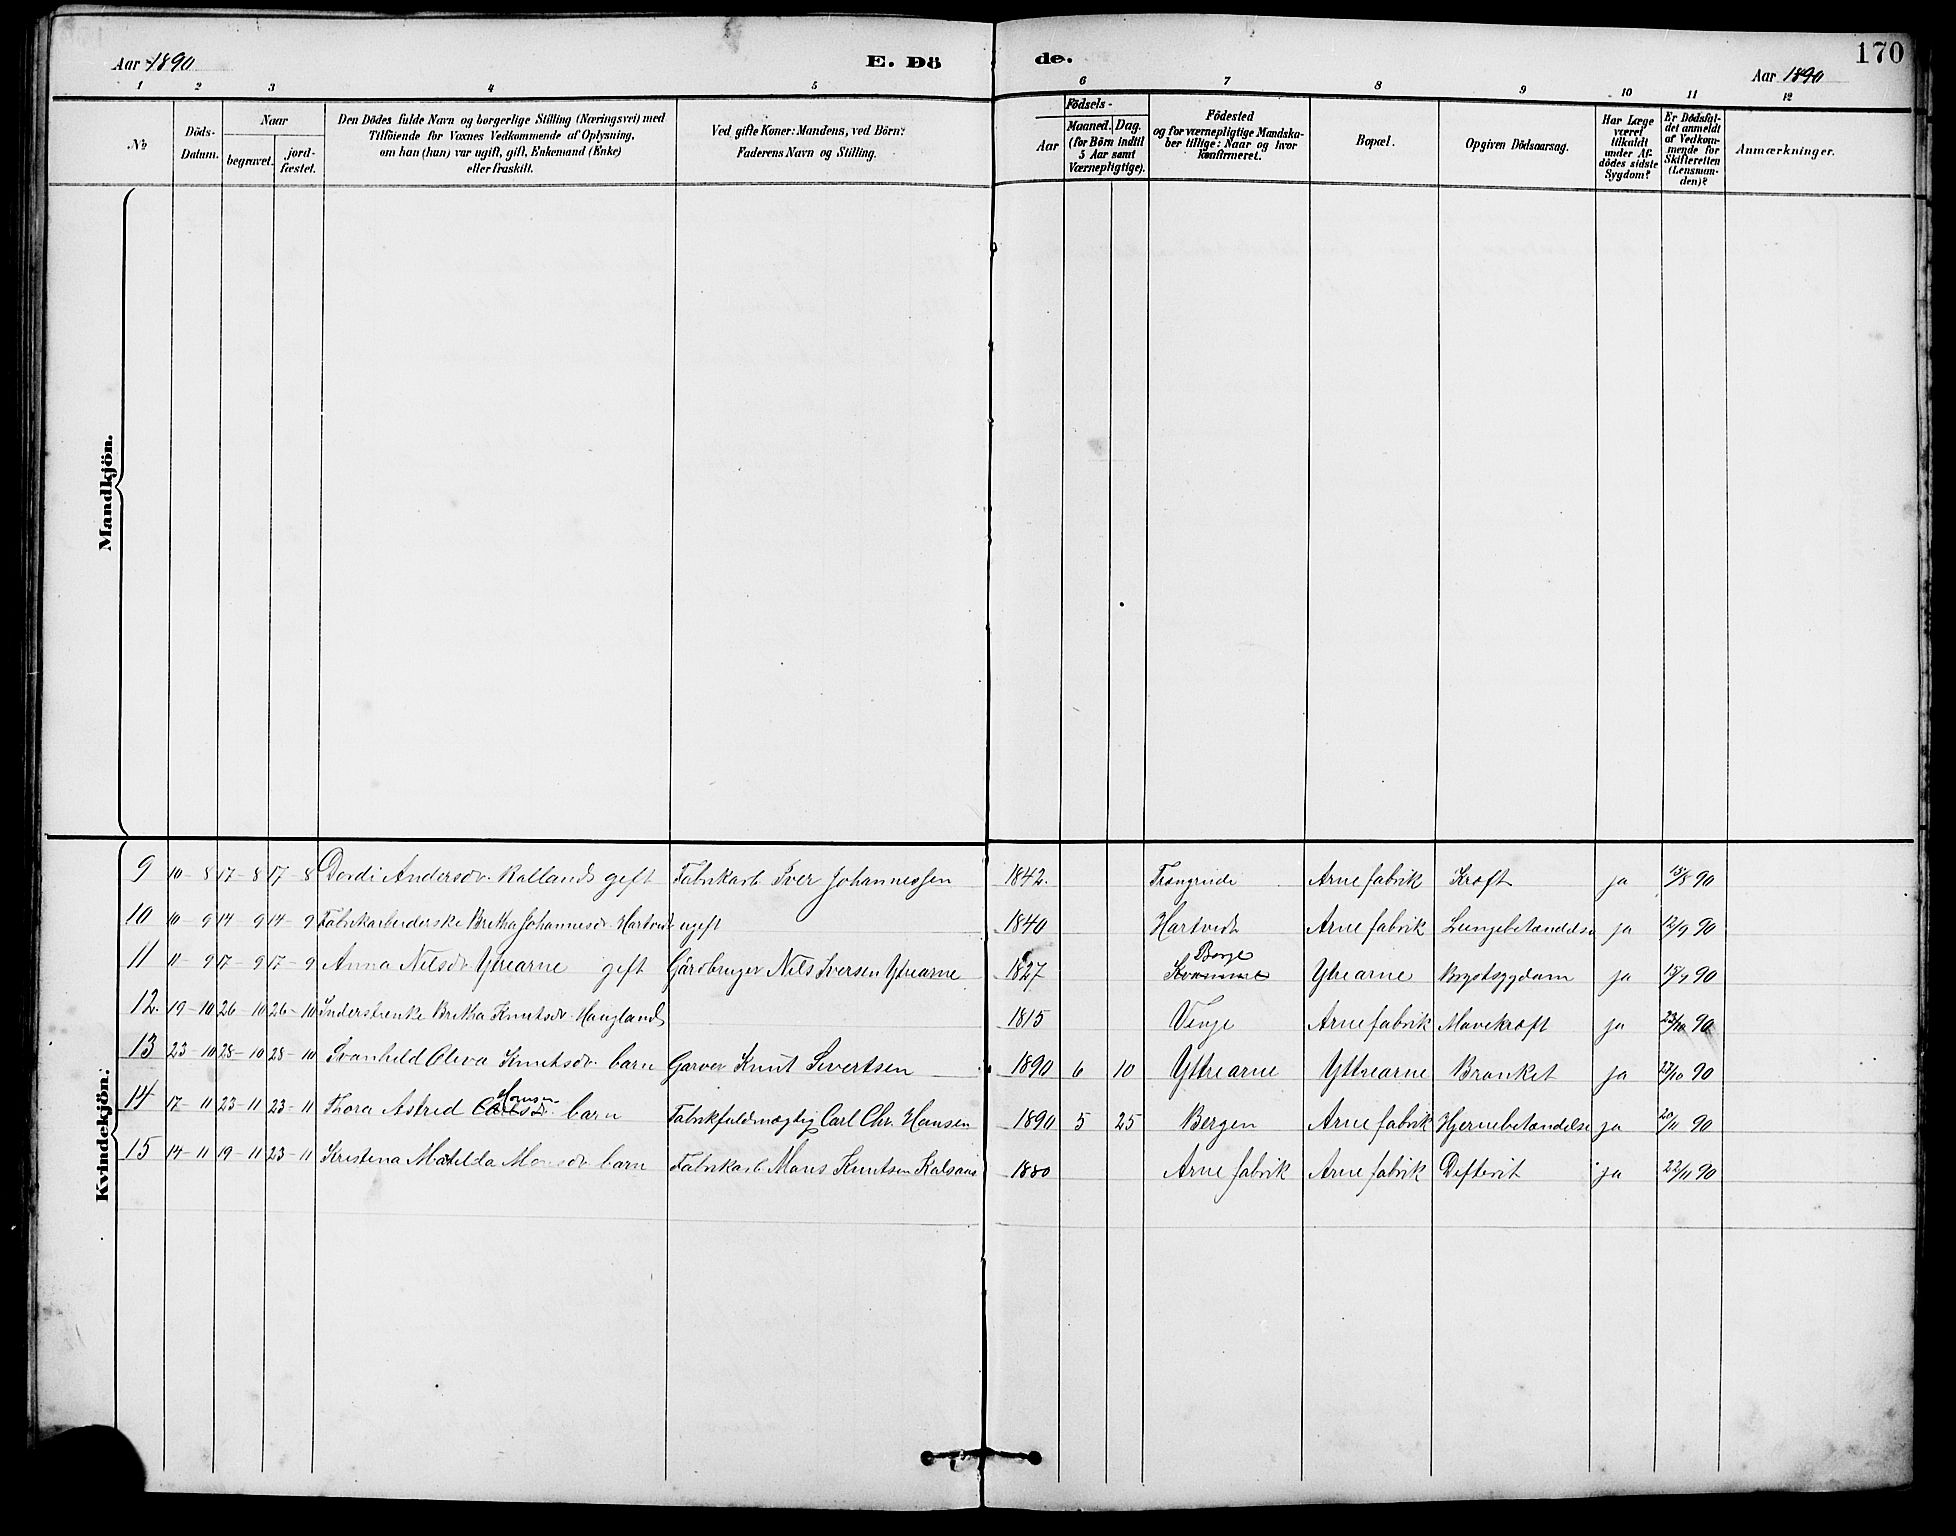 Aar 1890
E. Dö
de.
Aar 1890
170
1 2 3 4 5 6 7 8 9 10 11 12
No
Döds-Datum.
Naar
begravet.
jord-fæstet.
Den Dödes fulde Navn og borgerlige Stilling (Næringsvei) med
Tilföiende for Voxnes Vedkommende af Oplysning,
om han (hun) var ugift, gift, Enkemand (Enke)
eller fraskilt.
Ved gifte Koner: Mandens, ved Börn:
Faderens Navn og Stilling.
Födsels-
Aar
Maaned. Dag.
(for Börn indtil
5 Aar samt
Værnepligtige).
Födested
og for værnepligtige Mandska-
ber tillige: Naar og hvor
konfirmeret.
Bopæl.
Opgiven Dödsaarsag.
Har Læge
været
tilkaldt
under Af-
dödes sidste
Sygdom?
Er Dödsfal-
det anmeldt
af Vedkom-
mende for
Skifteretten
(Lensman-
den)?
Anmærkninger.
Mandkjön.
Kvindekjön.
9 10-8 17-8 17-8 Dordi Andersdr. Kalland gift Fabrikarb. Iver Johannessen 1842. Trængrude Arne fabrik Kræft ja 15/8 90
10 10-9 14-9 14-9 Fabrikarbeiderske Britha Johannesdr Hartvedt ugift 1840 Hartvedt Arne fabrik Lungebetændelse ja 12/9 90
11 11-9 17-9 17-9 Anna Nilsdr Ytrearne gift Gårdbruger Nils Iversen Ytrearne 1827 Borge Ytrearne Brystsygdom ja 90
12. 19-10 26-10 26-10 Inderstenke Britha Knutsdr. Haugland 1815 Vinje Arne fabrik Mavekræft ja 23/10 90
13 23-10 28-10 28-10 Svanhild Oliva Knutsdr. barn Garver Knut Sivertsen 1890 6 10 Yttrearne Yttrearne Bronket ja 27/10 90
14 17-11 23-11 23-11 Thora Astrid Carlsdr. Hansen barn Fabrikfuldmægtig Carl Chr. Hansen 1890 5 25 Bergen Arne fabrik Hjernebetændelse ja 20/11 90
15 14-11 19-11 23-11 Kristina Matilda Monsdr barn Fabrikarb. Mons Knutsen Kalsaas 1880 Arne fabrik Arne fabrik Defterit ja 22/11 90